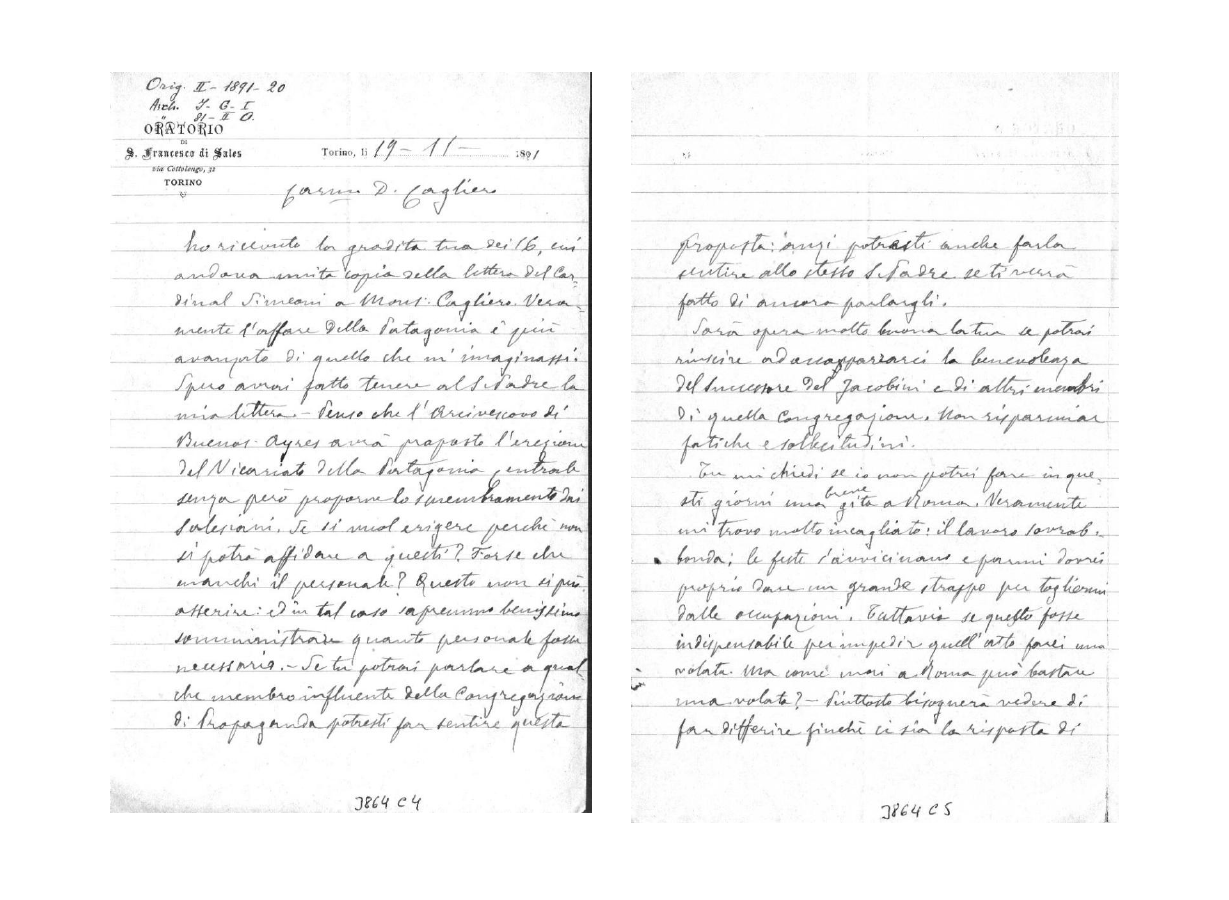 Orig. II - 1891 - 20
Arch. J - G - I
" 81 - II O.
ORATORIO
DI
S. Francesco di Sales
via Cottolengo, 32
TORINO
Torino, li 19 - 11 - 1891
Carmo D. Cagliero
ho ricevuto la gradita tua dei 16, cui
andava unita copia della lettera del Car-
dinal Simeoni a Mons. Cagliero. Vera-
mente l'affare della Patagonia è più
avanzato di quello che m'imaginassi.
Spero avrai fatto tenere al S. Padre la
mia lettera. - Penso che l'Arcivescovo di
Buenos Ayres avrà proposto l'erezione
del Vicariato della Patagonia centrale
senza però proporne lo smembramento dai
Salesiani. Se si vuol erigere perchè non
si potrà affidare a questi? Forse che
manchi il personale? Questo non si può
asserire: ed in tal caso sapremmo benissimo
somministrare quanto personale fosse
necessario. - Se tu potrai parlare a qual
che membro influente della Congregazione
di Propaganda potresti far sentire questa
J864 C4
proposta: anzi potresti anche farla
sentire allo stesso S. Padre se ti verrà
fatto di ancora parlargli.
Sarà opera molto buona la tua se potrai
riuscire ad accapparrarci la benevolenza
del successore del Jacobini e di altri membri
di quella Congregazione. Non risparmiar
fatiche e sollecitudini.
Tu mi chiedi se io non potrei fare in que-
sti giorni una breve gita a Roma. Veramente
mi trovo molto incagliato: il lavoro sovrab-
bonda; le feste s'avvicinano e parmi dovrei
proprio dare un grande strappo per togliermi
dalle occupazioni. Tuttavia se questo fosse
indispensabile per impedir quell'atto farei una
volata. Ma come mai a Roma può bastare
una volata? - Piuttosto bisognerà vedere di
far differire finchè ci sia la risposta di
J864 C5